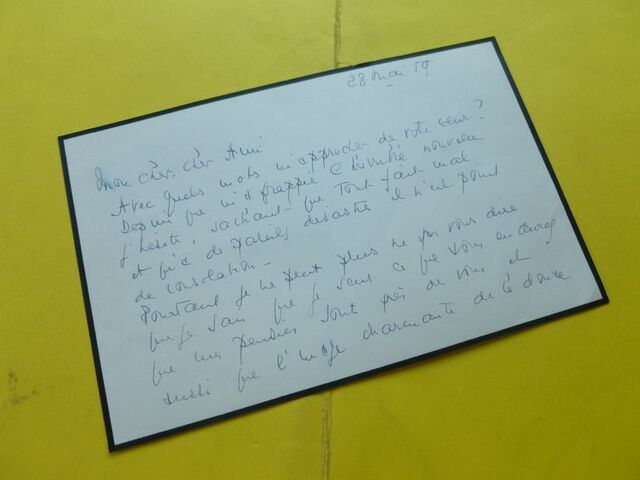 28 Mai 59
Mon cher, cher Ami
Avec quels mots m'approcher de votre cœur?
Depuis que m'a frappée l'horrible nouvelle
j'hésite, sachant que tout fait mal
et qu'à de pareils désastres il n'est point
de consolation -
Pourtant je ne peux plus ne pas vous dire
que je sais que je sens ce que vous endurez
que mes pensées sont près de vous et
aussi que l'image charmante de la douce